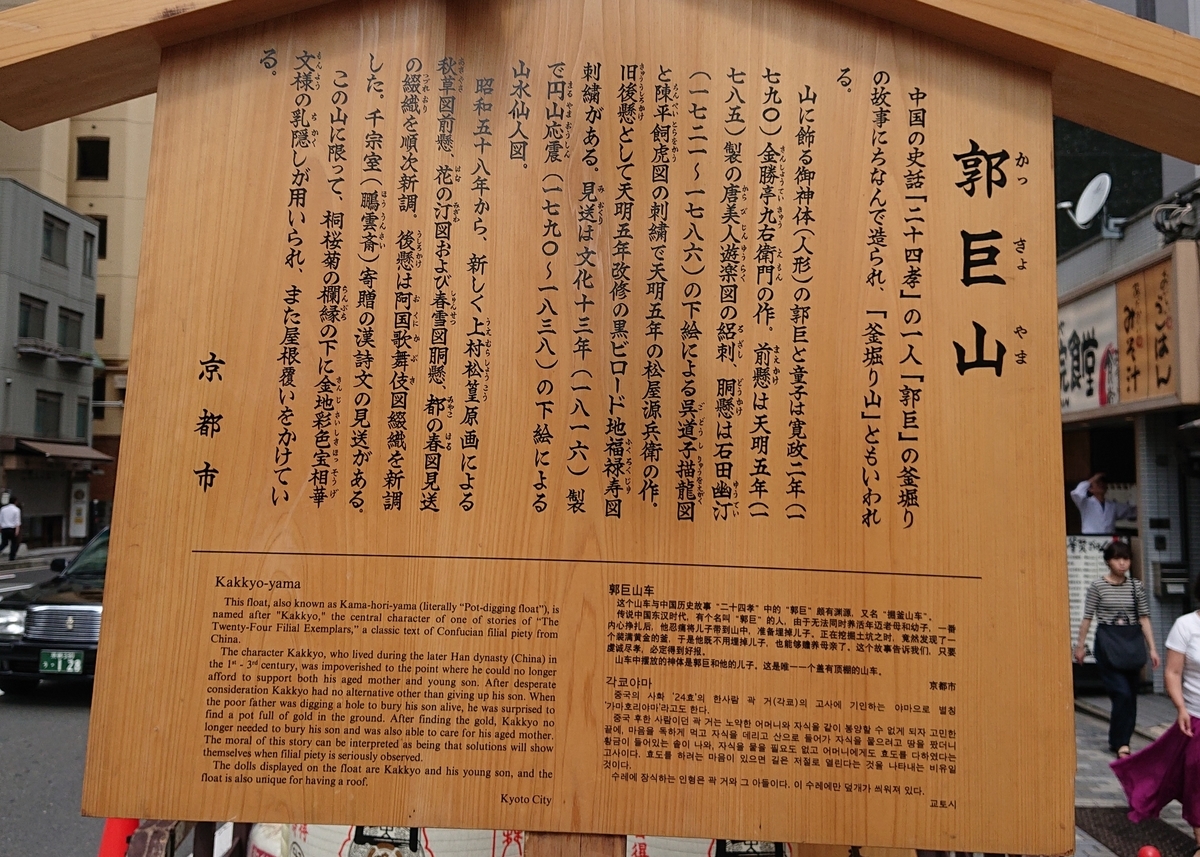 郭巨山
かっ きょ やま
中国の史話『二十四孝』の一人『郭巨』の釜堀り
の故事にちなんで造られ、「釜堀り山」ともいわれ
る。
山に飾る御神体(人形)の郭巨と童子は寛政二年(一
七九〇)金勝亭九右衛門の作。前懸は天明五年(一
七八五)製の唐美人遊楽図の綴刺、胴懸は石田幽汀
(一七二一〜一七八六)の下絵による呉道子描龍図
と陳平飼虎図の刺繍で天明五年の松屋源兵衛の作。
旧後懸として天明五年改修の黒ビロード地福禄寿図
刺繍がある。見送は文化十三年(一八一六)製
で円山応震(一七九〇〜一八三八)の下絵による
山水仙人図。
昭和五十八年から、新しく上村松篁原画による
秋草図前懸、花の汀図および春雪図胴懸、都の春図見送
の綴織を順次新調。後懸は阿国歌舞伎図綴織を新調
した。千宗室(鵬雲斎)寄贈の漢詩文の見送がある。
この山に限って、桐桜菊の欄縁の下に金地彩色宝相華
文様の乳隠しが用いられ、また屋根覆いをかけてい
る。
京都市
Kakkyo-yama
This float, also known as Kama-hori-yama (literally "Pot-digging float"), is
named after "Kakkyo," the central character of one of stories of "The
Twenty-Four Filial Exemplars," a classic text of Confucian filial piety from
China.
The character Kakkyo, who lived during the later Han dynasty (China) in
the 1st - 3rd century, was impoverished to the point where he could no longer
afford to support both his aged mother and young son. After desperate
consideration Kakkyo had no alternative other than giving up his son. When
the poor father was digging a hole to bury his son alive, he was surprised to
find a pot full of gold in the ground. After finding the gold, Kakkyo no
longer needed to bury his son and was also able to care for his aged mother.
The moral of this story can be interpreted as being that solutions will show
themselves when filial piety is seriously observed.
The dolls displayed on the float are Kakkyo and his young son, and the
float is also unique for having a roof.
Kyoto City
郭巨山车
这个山车与中国历史故事“二十四孝”中的“郭巨”颇有渊源，又名“掘釜山车”。
传说中国东汉时代，有个名叫“郭巨”的人，由于无法同时养活年迈老母和幼子，一番
内心挣扎后，他忍痛将儿子带到山中，准备埋掉儿子。正在挖掘土坑之时，竟然发现了一
个装满黄金的釜，于是他既不用埋掉儿子，也能够赡养母亲了。这个故事告诉我们，只要
虔诚尽孝，必定得到好报。
山车中摆放的神体是郭巨和他的儿子。这是唯一一个盖有顶棚的山车。
京都市
각쿄야마
중국의 사화 '24효'의 한사람 곽 거(각쿄)의 고사에 기인하는 야마으로 별칭
'가마호리야마'라고도 한다.
중국 후한 사람이던 곽 거는 노약한 어머니와 자식을 같이 봉양할 수 없게 되자 고민한
끝에, 마음을 독하게 먹고 자식을 데리고 산으로 들어가 자식을 묻으려고 땅을 팠더니
황금이 들어있는 솥이 나와, 자식을 묻을 필요도 없고 어머니에게도 효도를 다하였다는
고사이다. 효도를 하려는 마음이 있으면 길은 저절로 열린다는 것을 나타내는 비유일
것이다.
수레에 장식하는 인형은 곽 거와 그 아들이다. 이 수레에만 덮개가 씌워져 있다.
교토시
ごはん
みそ汁
食堂
128